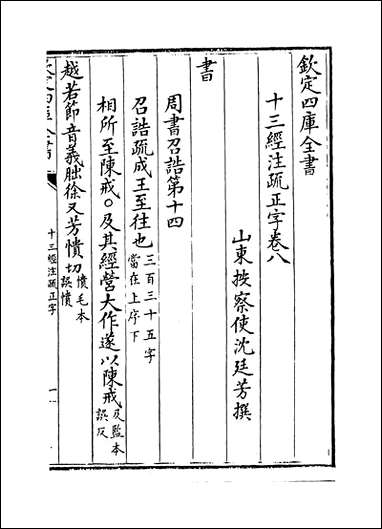 欽定四庫全書
十三經注疏正字卷八
山東按察使沈廷芳撰
書
周書召誥第十四
召誥疏成王至往也三百三十五字當在上序下
相所至陳戒○及其經營大作遂以陳戒及監本誤反
越若節音義朏徐又芳憒切憒毛本誤憤
十三經注疏正字